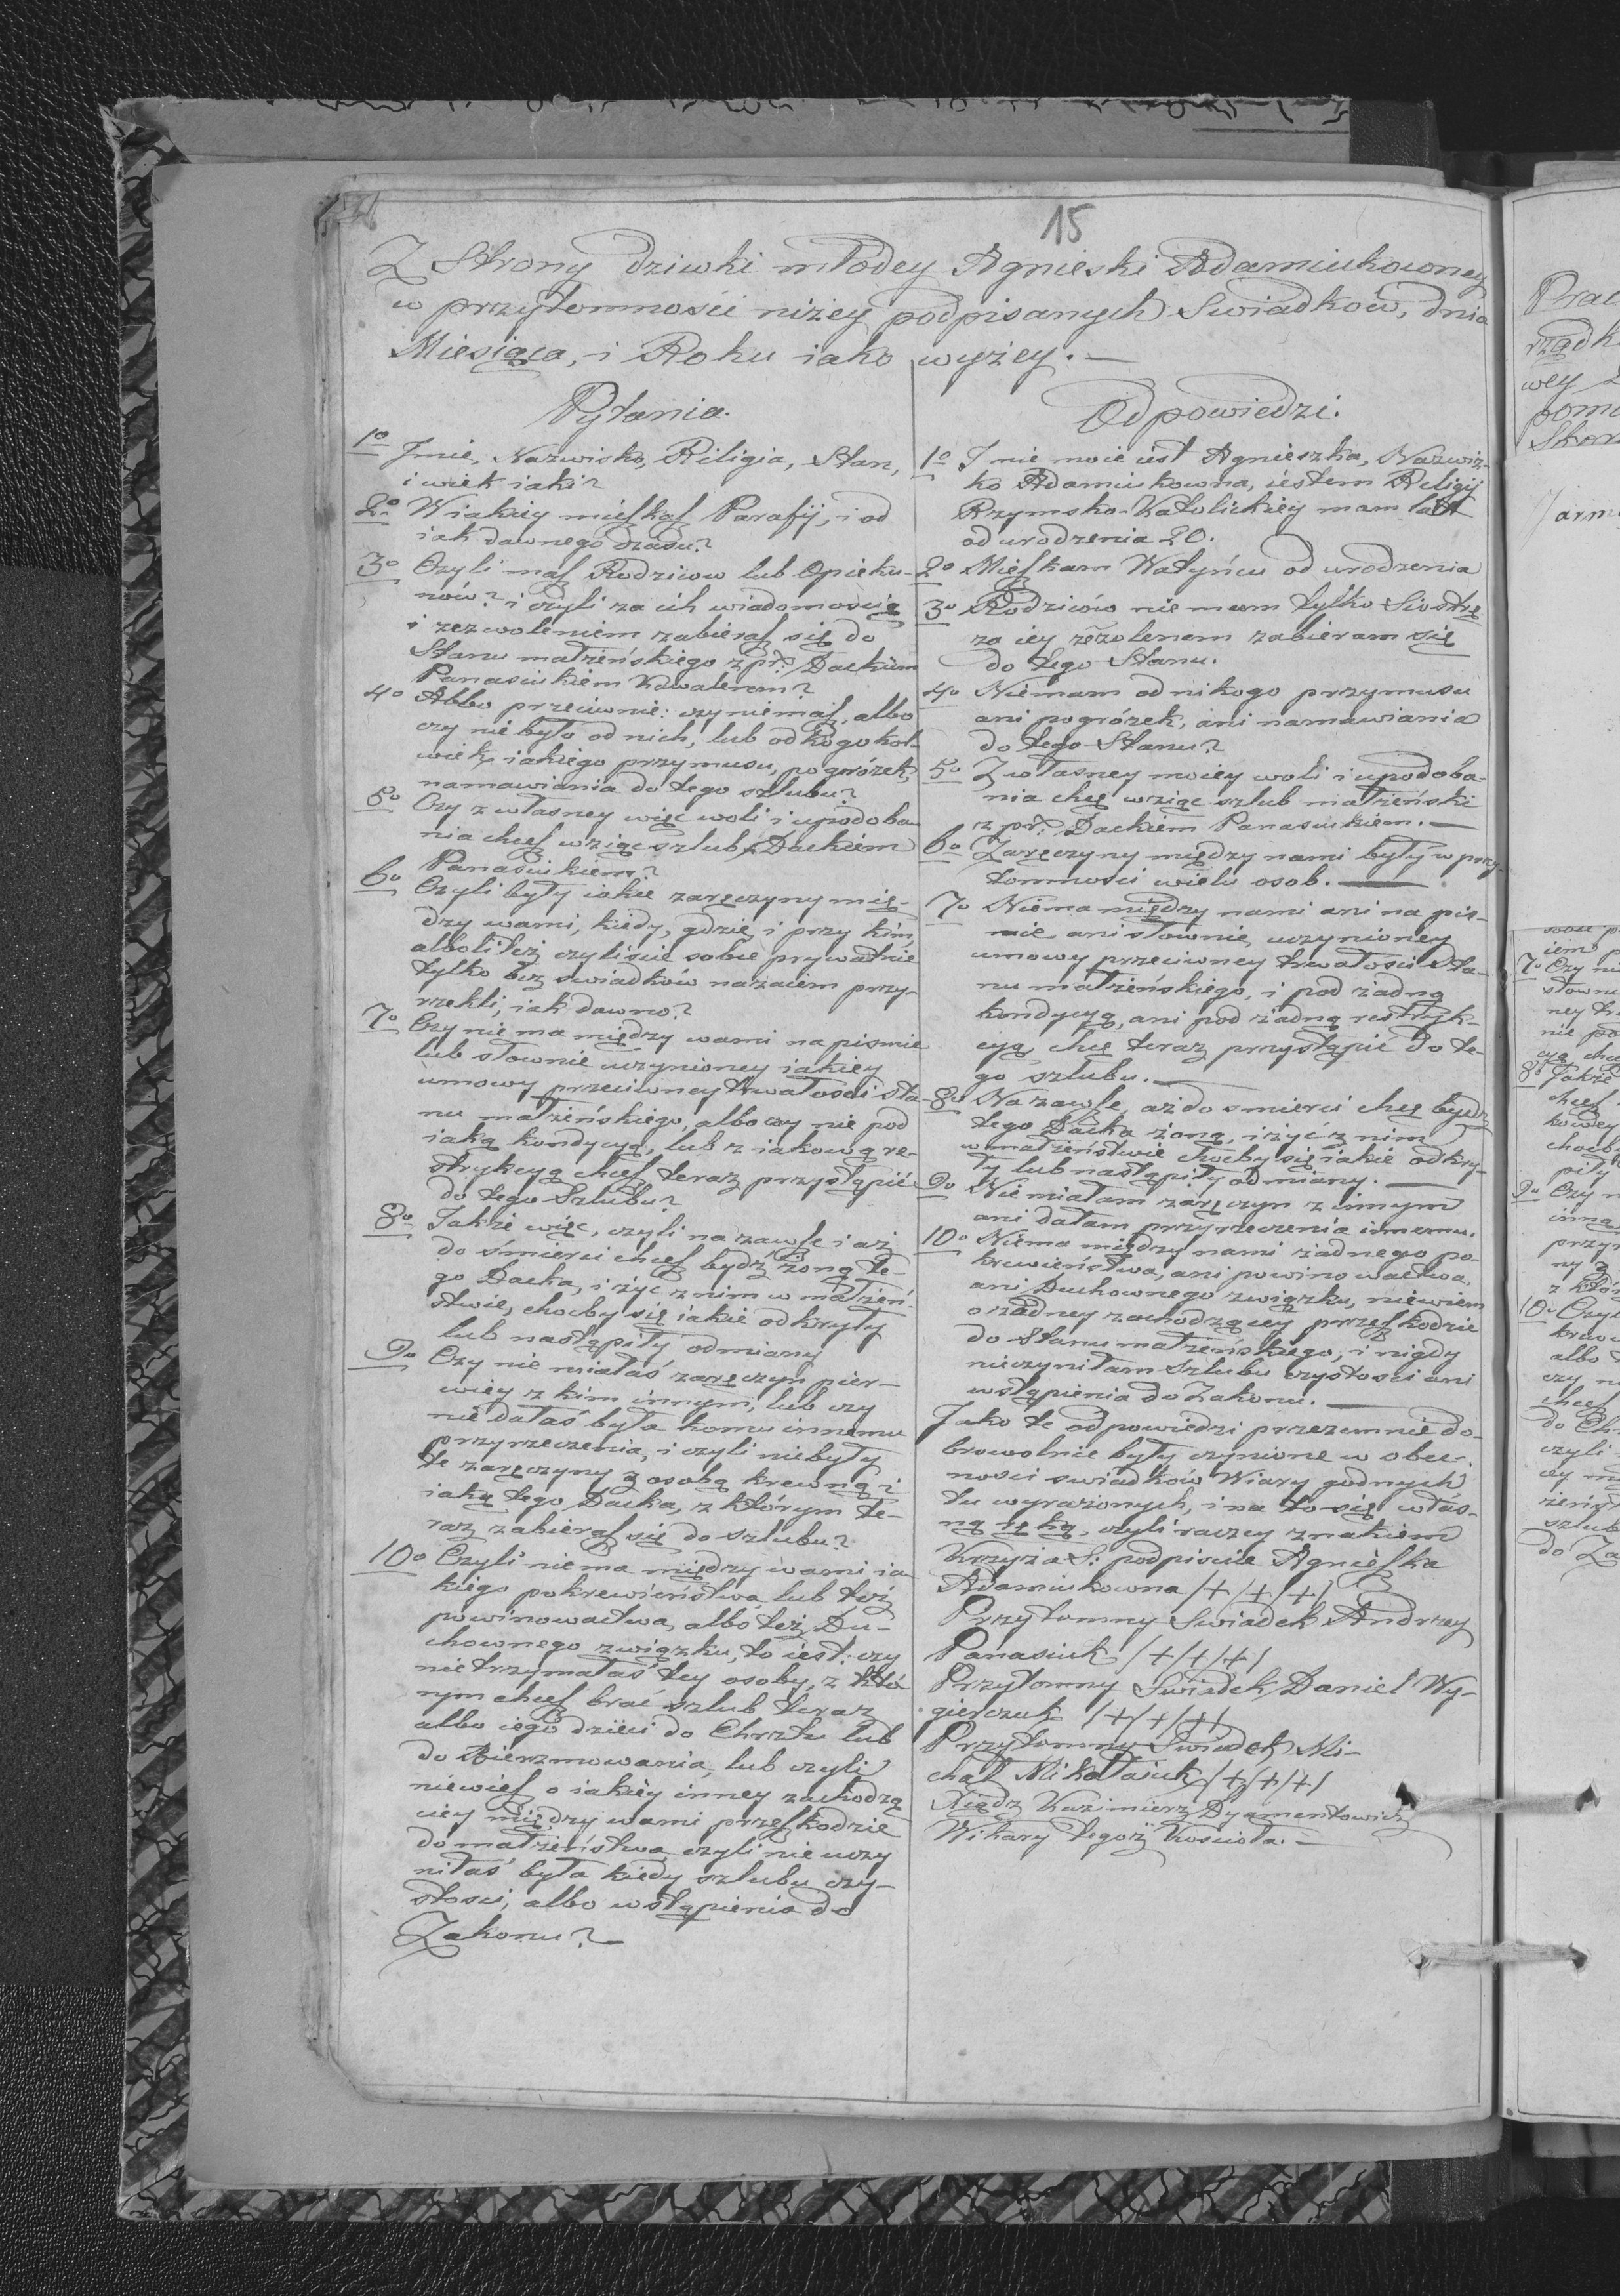 15
Z Strony dziwki młodey Agnieski Adamiukowney
w przytomności niżey podpisanych Swiadków, dnia
Miesiąca, i Roku iako wyżey. —
Pytania.
1o Jmie, Nazwisko, Religia, Stan,
i wiek iaki?
2o W iakiey mieſkaſ Parafij, i od
iak dawnego czasu?
3o Czyli maſ Rodziców lub Opieku-
nów? i czyli za ich wiadomością
i zezwoleniem zabieraſ się do
Stanu małżeńskiego z pr: Dackiem
Panasiukiem Kawalerem?
4o Abbo przeciwnie: czy niemaſ, albo
czy nie było od nich, lub od kogokol-
wiek iakiego przymusu, pogróżek,
namawiania do tego szlubu?
5o Czy z własney więc woli i upodoba
nia chceſ wziąc szlub z Dackiem
Panasiukiem?
6o Czyli były iakie zaręczyny mię-
dzy wami, kiedy, gdzie i przy kim,
alboli też czyliście sobie prywatnie
tylko bez swiadków nazaiem przy-
rzekli, iak dawno?
7o Czy nie ma między wami na pismie
lub słownie uczynioney iakiey
umowy przeciwney trwałości sta-
nu małżeńskiego, albo czy nie pod
iaką kondycyą, lub z iakową re-
strykcyą chceſ teraz przystąpić
do tego Szlubu?
8o Jakże więc, czyli na zawſe i aż
do śmierci chceſ bydź żoną te-
go Dacka, i żyć z nim w małżeń-
stwie, chocby się iakie odkryły
lub nastąpiły odmiany
9o Czy nie miałaś zaręczyn pier-
wiey z kim innym, lub czy
nie dałaś była komu innemu
przyrzeczenia, i czyli niebyły
te zaręczyny z osobą krewną
iaką tego Dacka, z którym te-
raz zabieraſ się do szlubu?
10o Czyli niema między wami ia
kiego pokrewieństwa lub też
powinowactwa, albo też Du-
chownego związku, to iest: czy
nietrzymałaś tey osoby, z któ
rym chceſ brać szlub teraz
albo iego dzieci do Chrztu lub
do Bierzmowania, lub czyli
niewieſ o iakiey inney zachodzą
cey między wami przeſkodzie
do małżeństwa czyli nie uczy
niłaś była kiedy szlubu czy-
stosci, albo wstąpienia do
Zakonu? —
Odpowiedzi.
1o Jmie moie iest Agnieszka, Nazwiz-
ko Adamiukowna, iestem Religij
Rzymsko-Katolickiey mam lat
od urodzenia 20.
2o Mieſkam Watyńcu od urodzenia
3o Rodziców nie mam tylko Siostrę
za iey zezolenem zabieram się
do tego Stanu.
4o Niemam od nikogo przymusu
ani pogróżek, ani namawiania
do tego Stanu?
5o Z własney moiey woli i upodoba-
nia chcę wziąc szlub małżeński
z pr: Dackiem Panasiukiem. —
6o Zaręczyny między nami były w przy-
tomności wielu osob. —
7o Niema między nami ani na pis-
mie ani słownie, uczynioney
umowy przeciwney trwałości Sta-
nu małżeńskiego, i pod żadną
kondycyą, ani pod żadną restryk-
cyą chcę teraz przystąpić do te-
go szlubu. —
8o Na zawſe, aż do smierci chcę bydz
tego Dacka żoną, i żyć z nim
w małżeństwie chocby się iakie odkry-
ły lub nastąpiły odmiany. —
9o Nie miałam zaręczyn z innym
ani dałam przyrzeczenia innemu.
10o Niema między nami żadnego po-
krewieństwa, ani powinowactwa,
ani Duchownego związku, niewiem
o żadney zachodzącey przeſkodzie
do Stanu małżeńskiego, i nigdy
nieczyniłam Szlubu czystosci ani
wstąpienia do Zakonu. —
Jako te odpowiedzi przezemnie do-
browolnie były czynione w obec-
ności swiadków Wiary godnych
tu wyrażonych, i na to się włas-
ną ręką, czyli raczey znakiem
Krzyża S: podpisuie Agnieſka
Adamiukowna /+/+/+/
Przytomny Swiadek Andrzey
Panasiuk /+/+/+/
Przytomny Swiadek Daniel Wy-
gierczuk /+/+/+/
Przytomny Swiadek Mi-
chał Mikołaiuk /+/+/+/
Xiądz Kazimierz Dyamentowicz
Wikary tegoż Kościoła. —